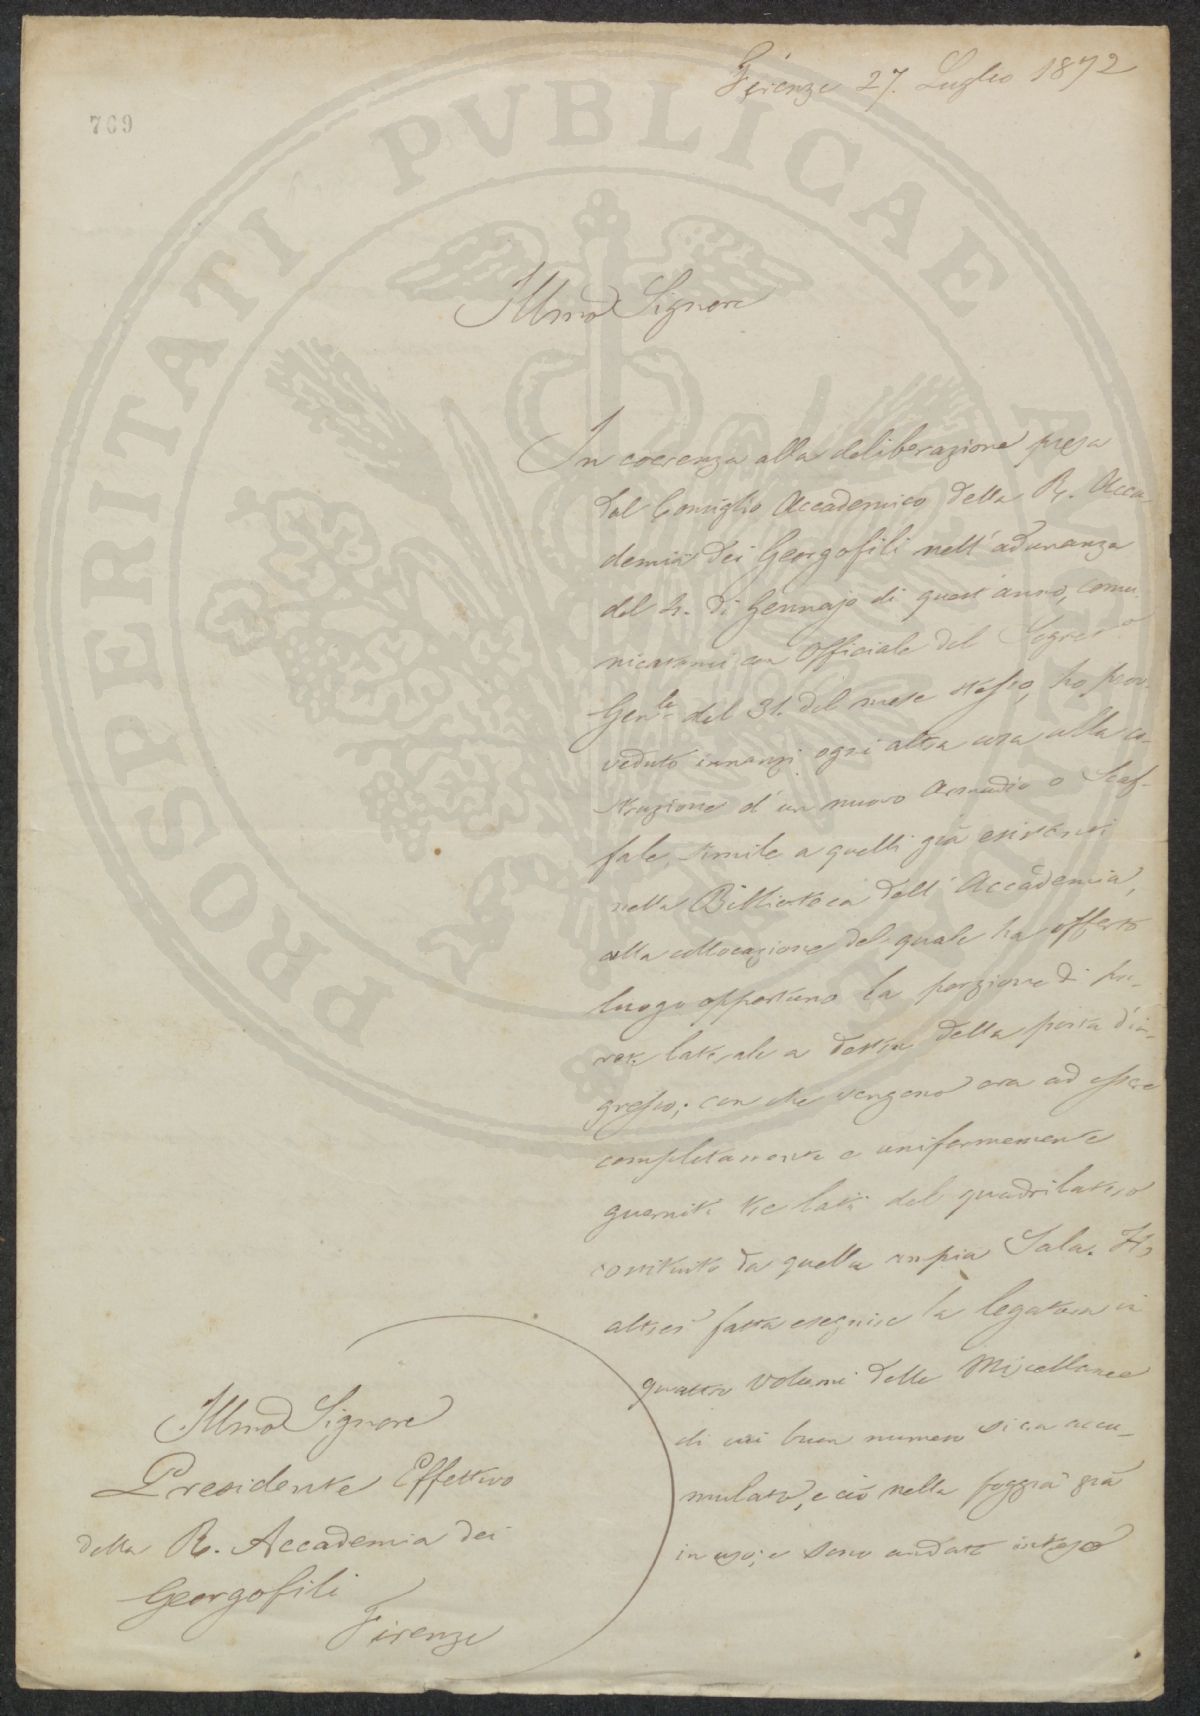 Firenze 27. Luglio 1872
769
PROSPERITATI PVBLICAE AVGENDAE
Illmo Signore
In coerenza alla deliberazione presa
dal Consiglio Accademico della R. Acca-
demia dei Georgofili nell'adunanza
del 4. di Gennajo di quest'anno, comu-
nicatami con Officiale del Segret.o
Gen.le del 31. del mese stesso, ho prov-
veduto innanzi ogni altra cosa alla co-
struzione d'un nuovo Armadio o Scaf-
fale simile a quelli già esistenti
nella Biblioteca dell'Accademia,
alla collocazione del quale ha offerto
luogo opportuno la porzione di pa-
rete laterale a destra della porta d'in-
gresso; con che vengono ora ad essere
completamente e uniformemente
guernite tre lati del quadrilatero
costituito da quella ampia Sala. Ho
altresì fatta eseguire la legatura in
quattro volumi delle Miscellanee
di cui buon numero si era accu-
mulato, e ciò nella foggia già
in uso; e sono andato inteso
Illmo Signore
Presidente Effettivo
della R. Accademia dei
Georgofili
Firenze